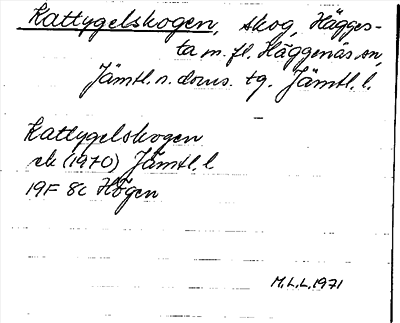 Kattygelskogen, skog, Hägges-
ta m. fl. Häggenäs sn,
Jämtl. n. doms. tg. Jämtl. l.
Kattygelskogen
ek (1970) Jämtl. l
19F 8c Högen
M.L.L. 1971